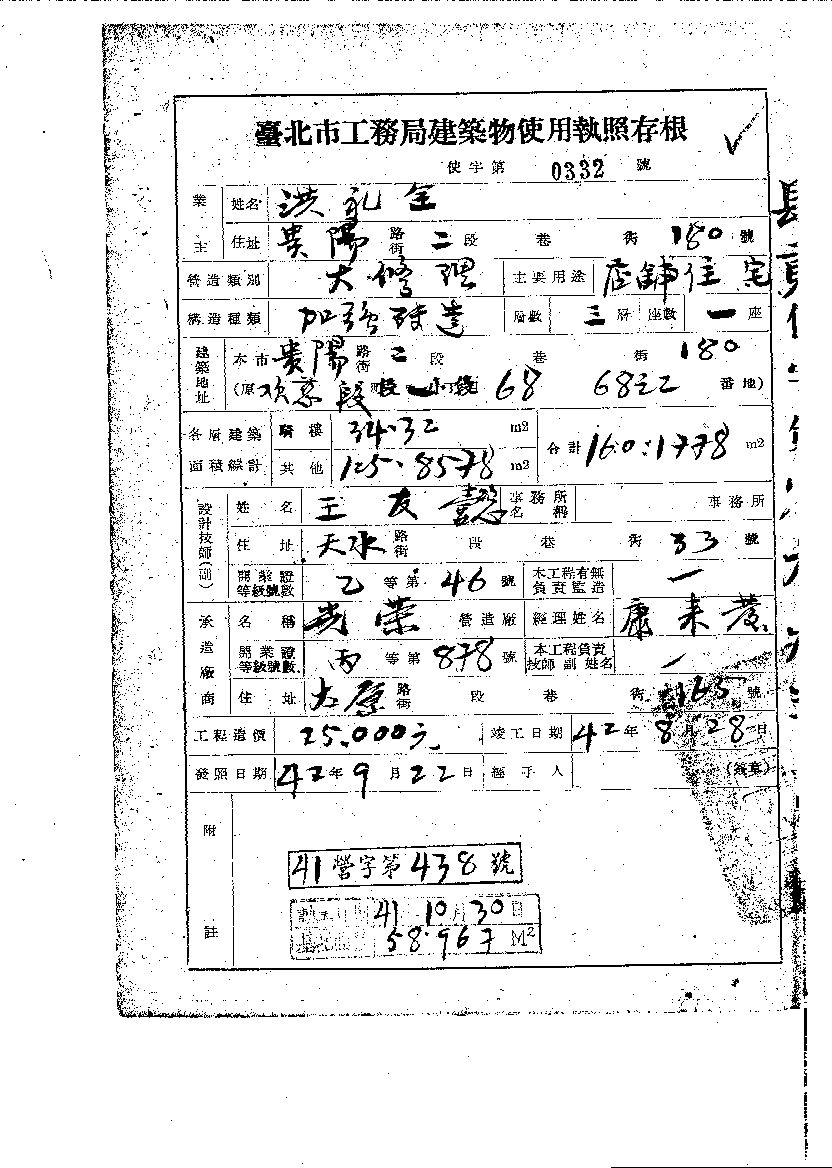 臺北市工務局建築物使用執照存根
使字第 0332 號
業主 姓名 洪礼全
住址 貴陽 路街 二 段 巷 街 180 號
營造類別 大修理 主要用途 店舖住宅
構造種類 加強磚造 層數 三 層 座數 一 座
建築地址 本市 貴陽 路街 二 段 巷 街 180
(原 段 68 68之2 番地)
各層建築面積總計 騎樓 34.32 m2 合計 160.1778 m2
其他 125.8578 m2
設計技師(副) 姓名 王友 事務所名稱 事務所
住址 天水 路街 段 巷 街 33 號
開業證等級號數 乙 等第 46 號 本工程有無負責監造 一
承造廠商 名稱 光榮 營造廠 經理姓名 康来
開業證等級號數 丙 等第 878 號 本工程負責技師副姓名 一
住址 太原 路街 段 巷 街 165 號
工程造價 25,000元 竣工日期 42年 8月28日
發照日期 42年9月22日 經手人 (簽章)
附註
41營字第438號
41 10月30日
58.967 M2